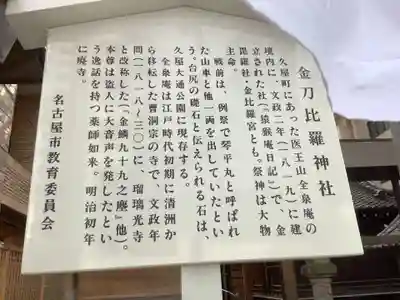 金刀比羅神社
久屋町にあった医王山全泉庵の
境内に、文政二年(一八一九)に建
立された社(『猿猴庵日記』)で、金
毘羅社・金比羅宮とも。祭神は大物
主命。
戦前は、例祭で琴平丸と呼ばれ
た山車と他一両を出していたとい
う。台尻の礎石と伝えられる石は、
久屋大通公園に現存する。
全泉庵は江戸時代初期に清洲か
ら移転した曹洞宗の寺で、文政年
間(一八一八~三〇)に、瑠璃光寺
と改称した(『金鱗九十九之塵』他)。
本尊は盗人に大音声を発したとい
う逸話を持つ薬師如来。明治初年
に廃寺。
名古屋市教育委員会